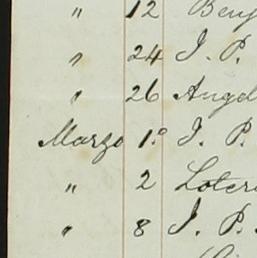 " 12 Benj
" 24 J. P.
" 26 Angel
Marzo 1.º J. P.
" 2 Loter
" 8 J. P.